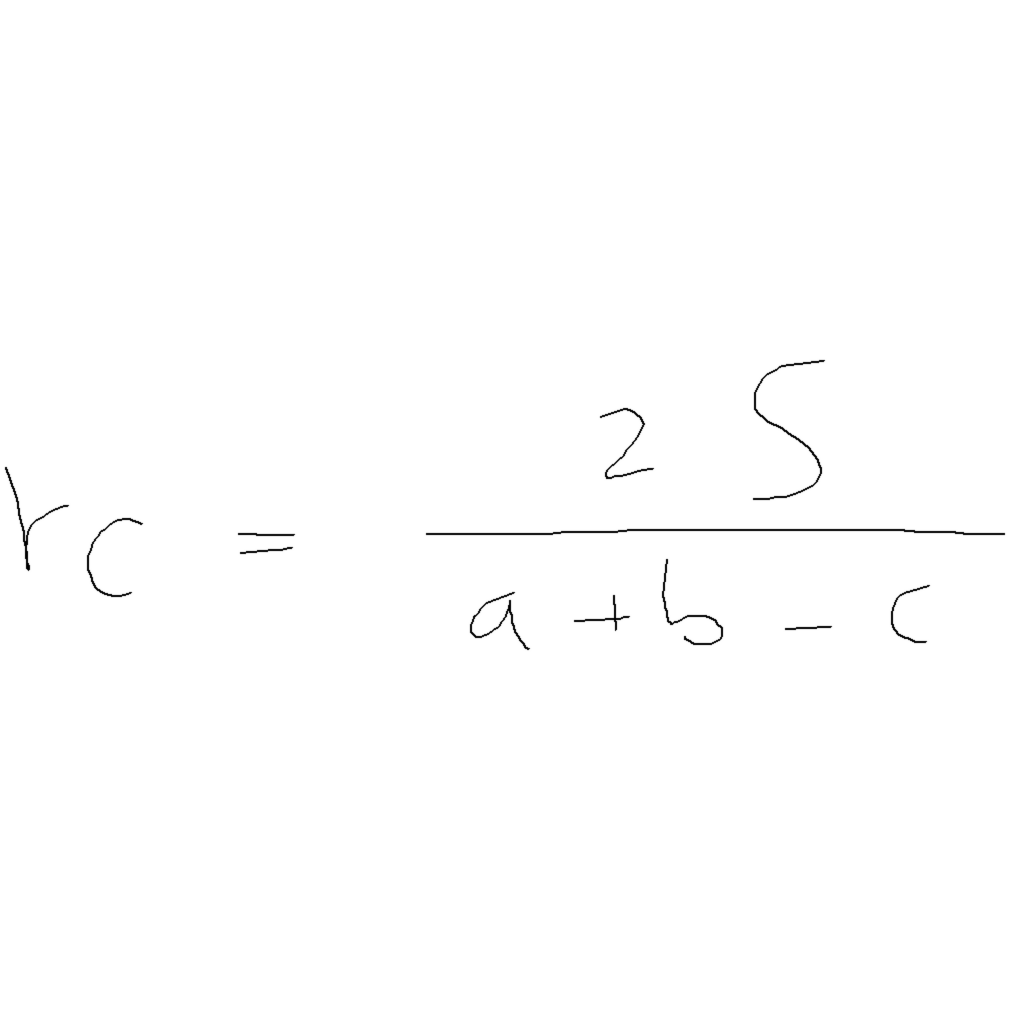 r_c = \frac{2S}{a+b-c}